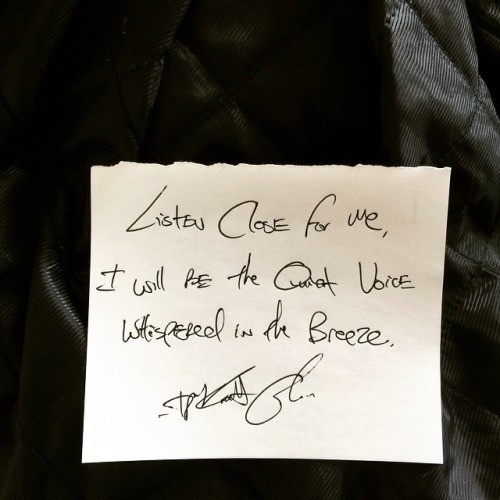 Listen Close for me,
I will be the Quiet Voice
whispered in the Breeze.